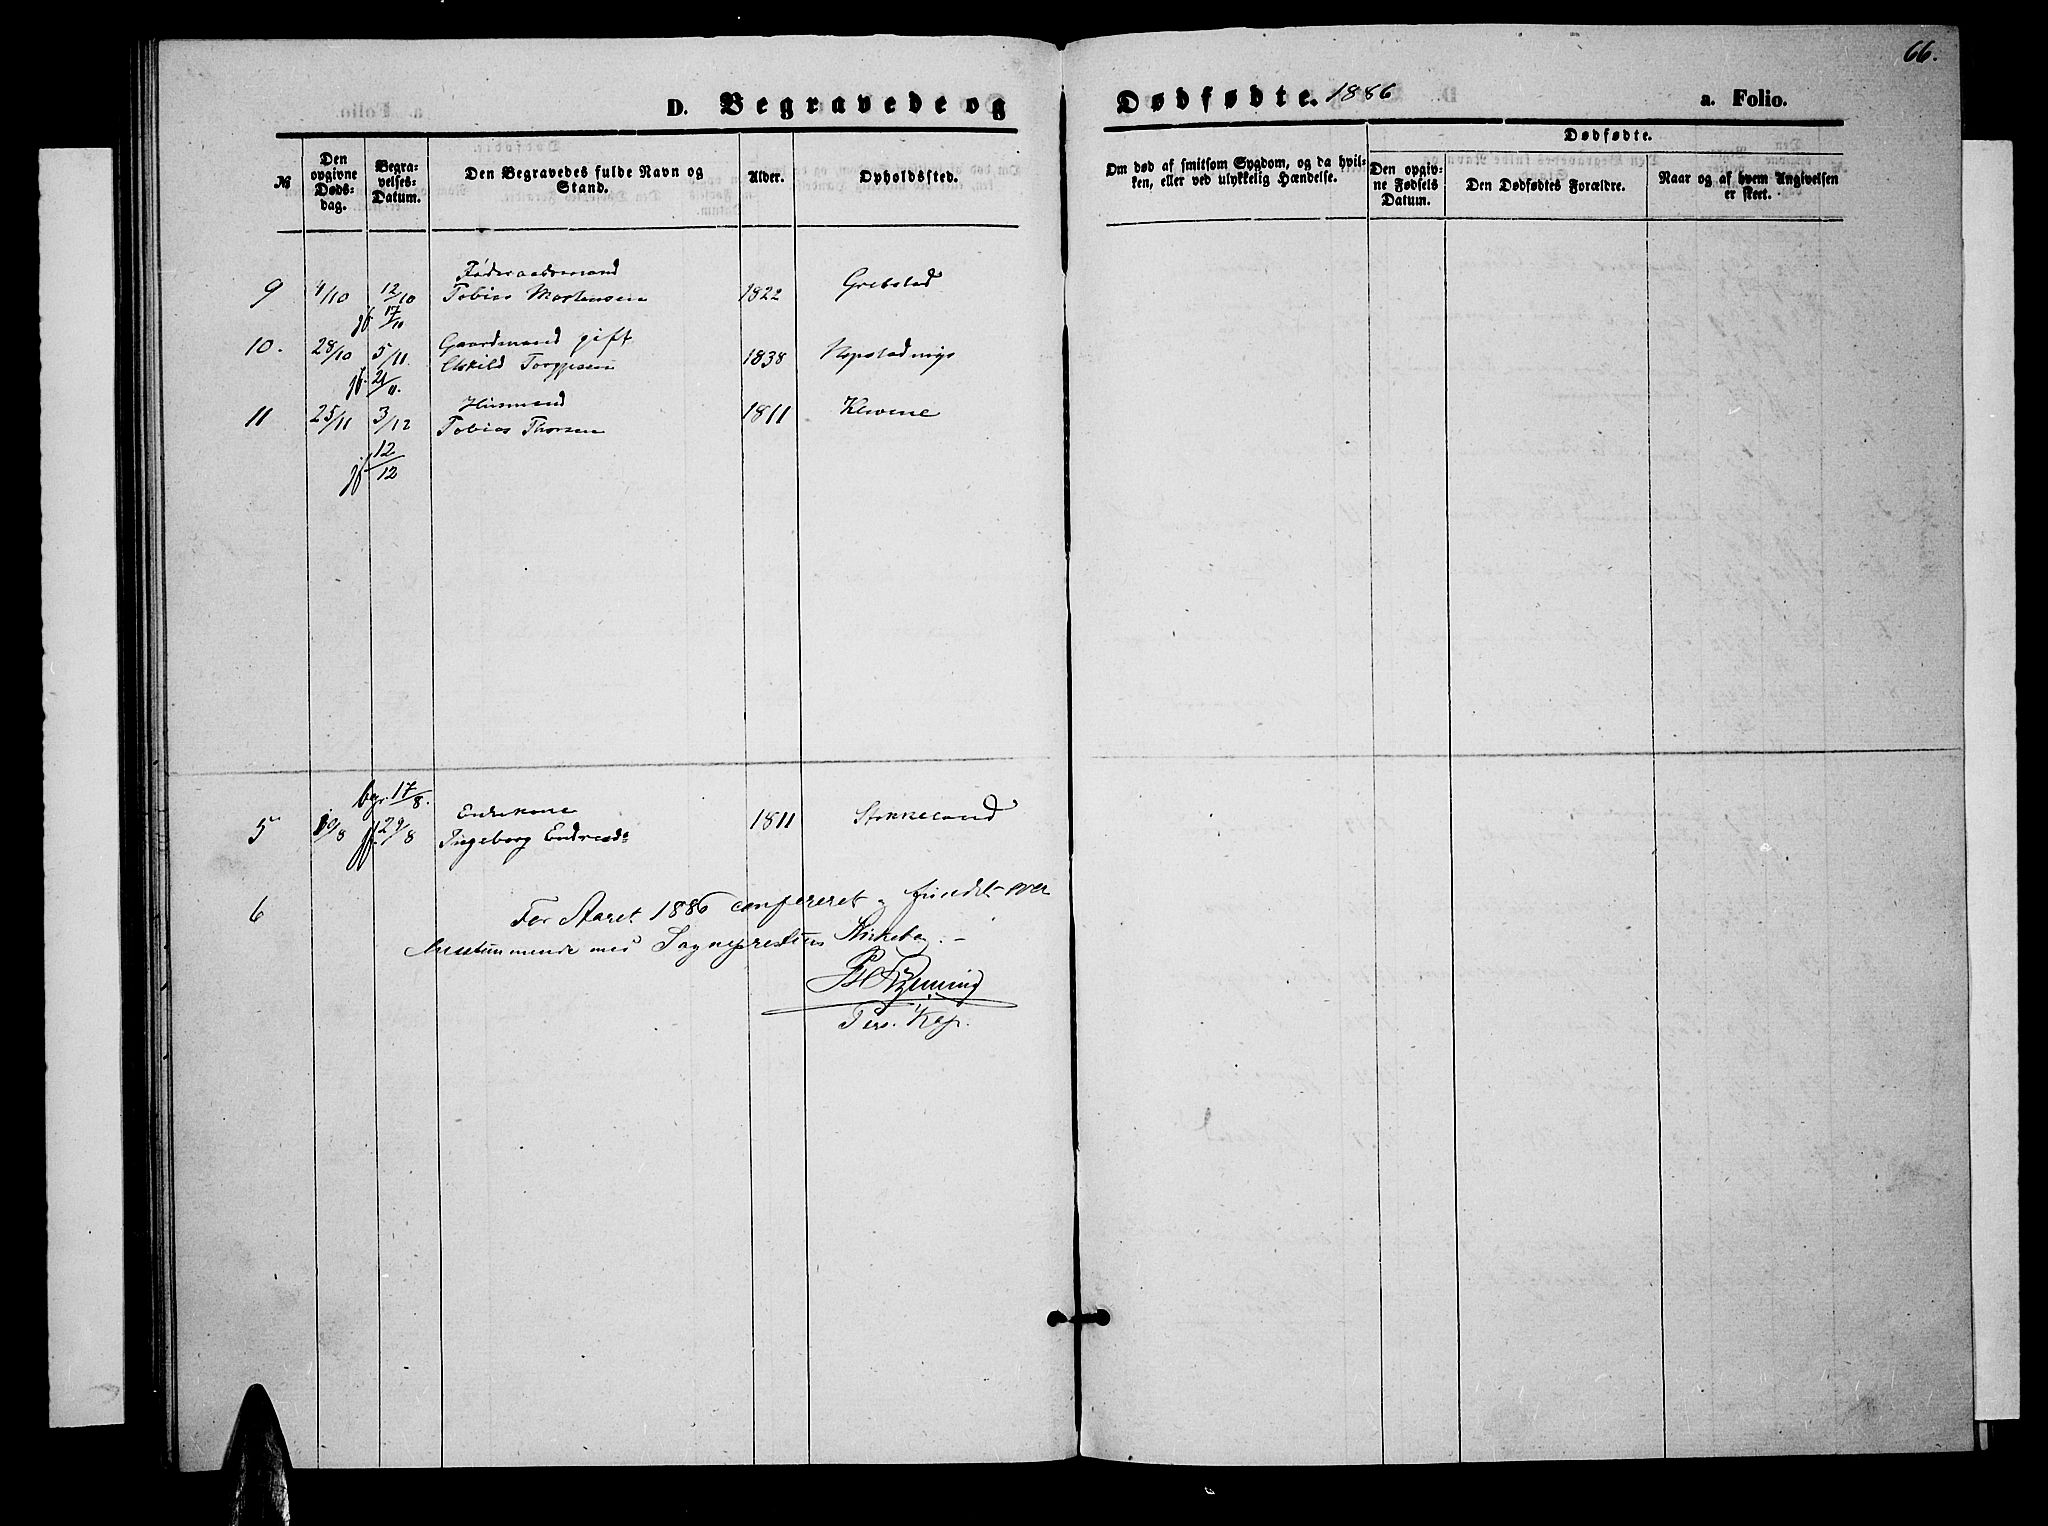 66.
D. Begravede og Dødfødte. 1886 a. Folio.
№
Den opgivne Døds-dag.
Begra-velses-Datum.
Den Begravedes fulde Navn og Stand.
Alder.
Opholdssted.
Om død af smitsom Sygdom, og da hvil-ken, eller ved ulykkelig Hændelse.
Dødfødte.
Den opgiv-ne Fødsels Datum.
Den Dødfødtes Forældre.
Naar og af hvem Angivelsen er skeet.
Føderaadsmand
9 4/10 12/10 Tobias Mortensen 1822 Grebstad
jf. 17/10
10. 28/10 5/11. Gaardmand gift
Eskild Torgjusen 1838
jf. 21/11.
Husmand
11 25/11 3/12 Tobias Thorsen 1811 Klevene
jf. 12/12
bgr. 17/8. Enkekone
5 10/8 jf. 29/8 Ingeborg Endresd: 1811 Stokkeland
6 For Aaret 1886 confereret og fundet over
med Sogneprestens Kirkebog. –
Pers. Kap.